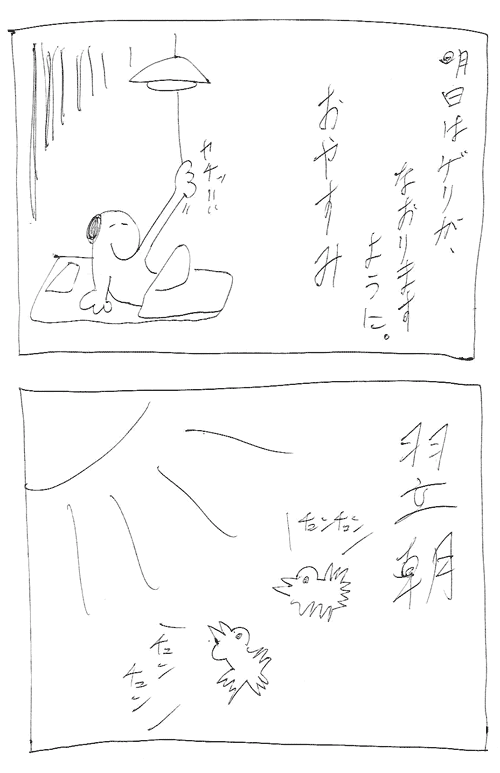 明日はゲリが、
なおります
ように。
おやすみ
カチッ!!
翌朝
チュンチュン
チュン
チュン